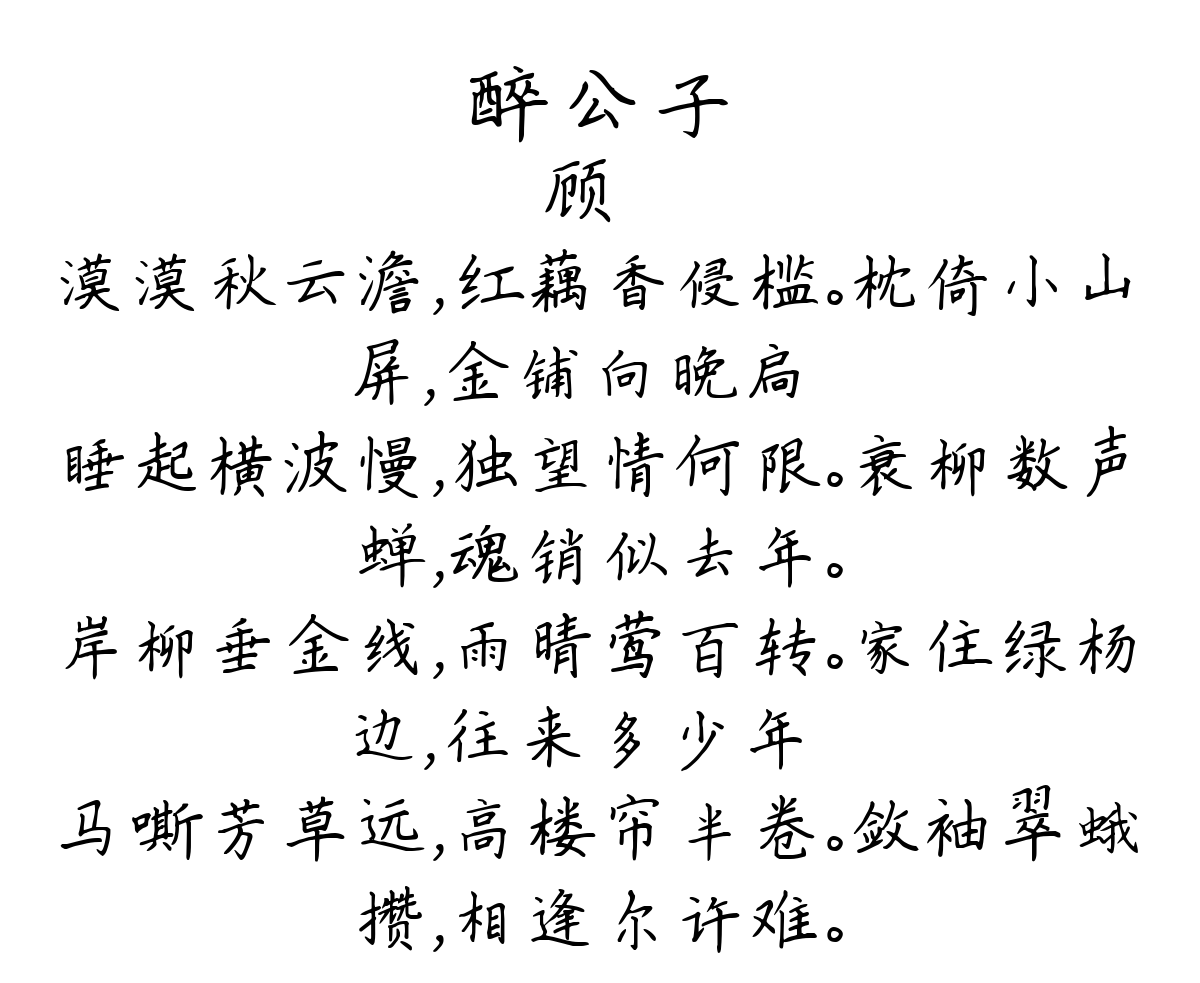 醉公子
顾
漠漠秋云澹,红藕香侵槛。枕倚小山
屏,金铺向晚扃
睡起横波慢,独望情何限。衰柳数声
蝉,魂销似去年。
岸柳垂金线,雨晴莺百转。家住绿杨
边,往来多少年
马嘶芳草远,高楼帘半卷。敛袖翠蛾
攒,相逢尔许难。